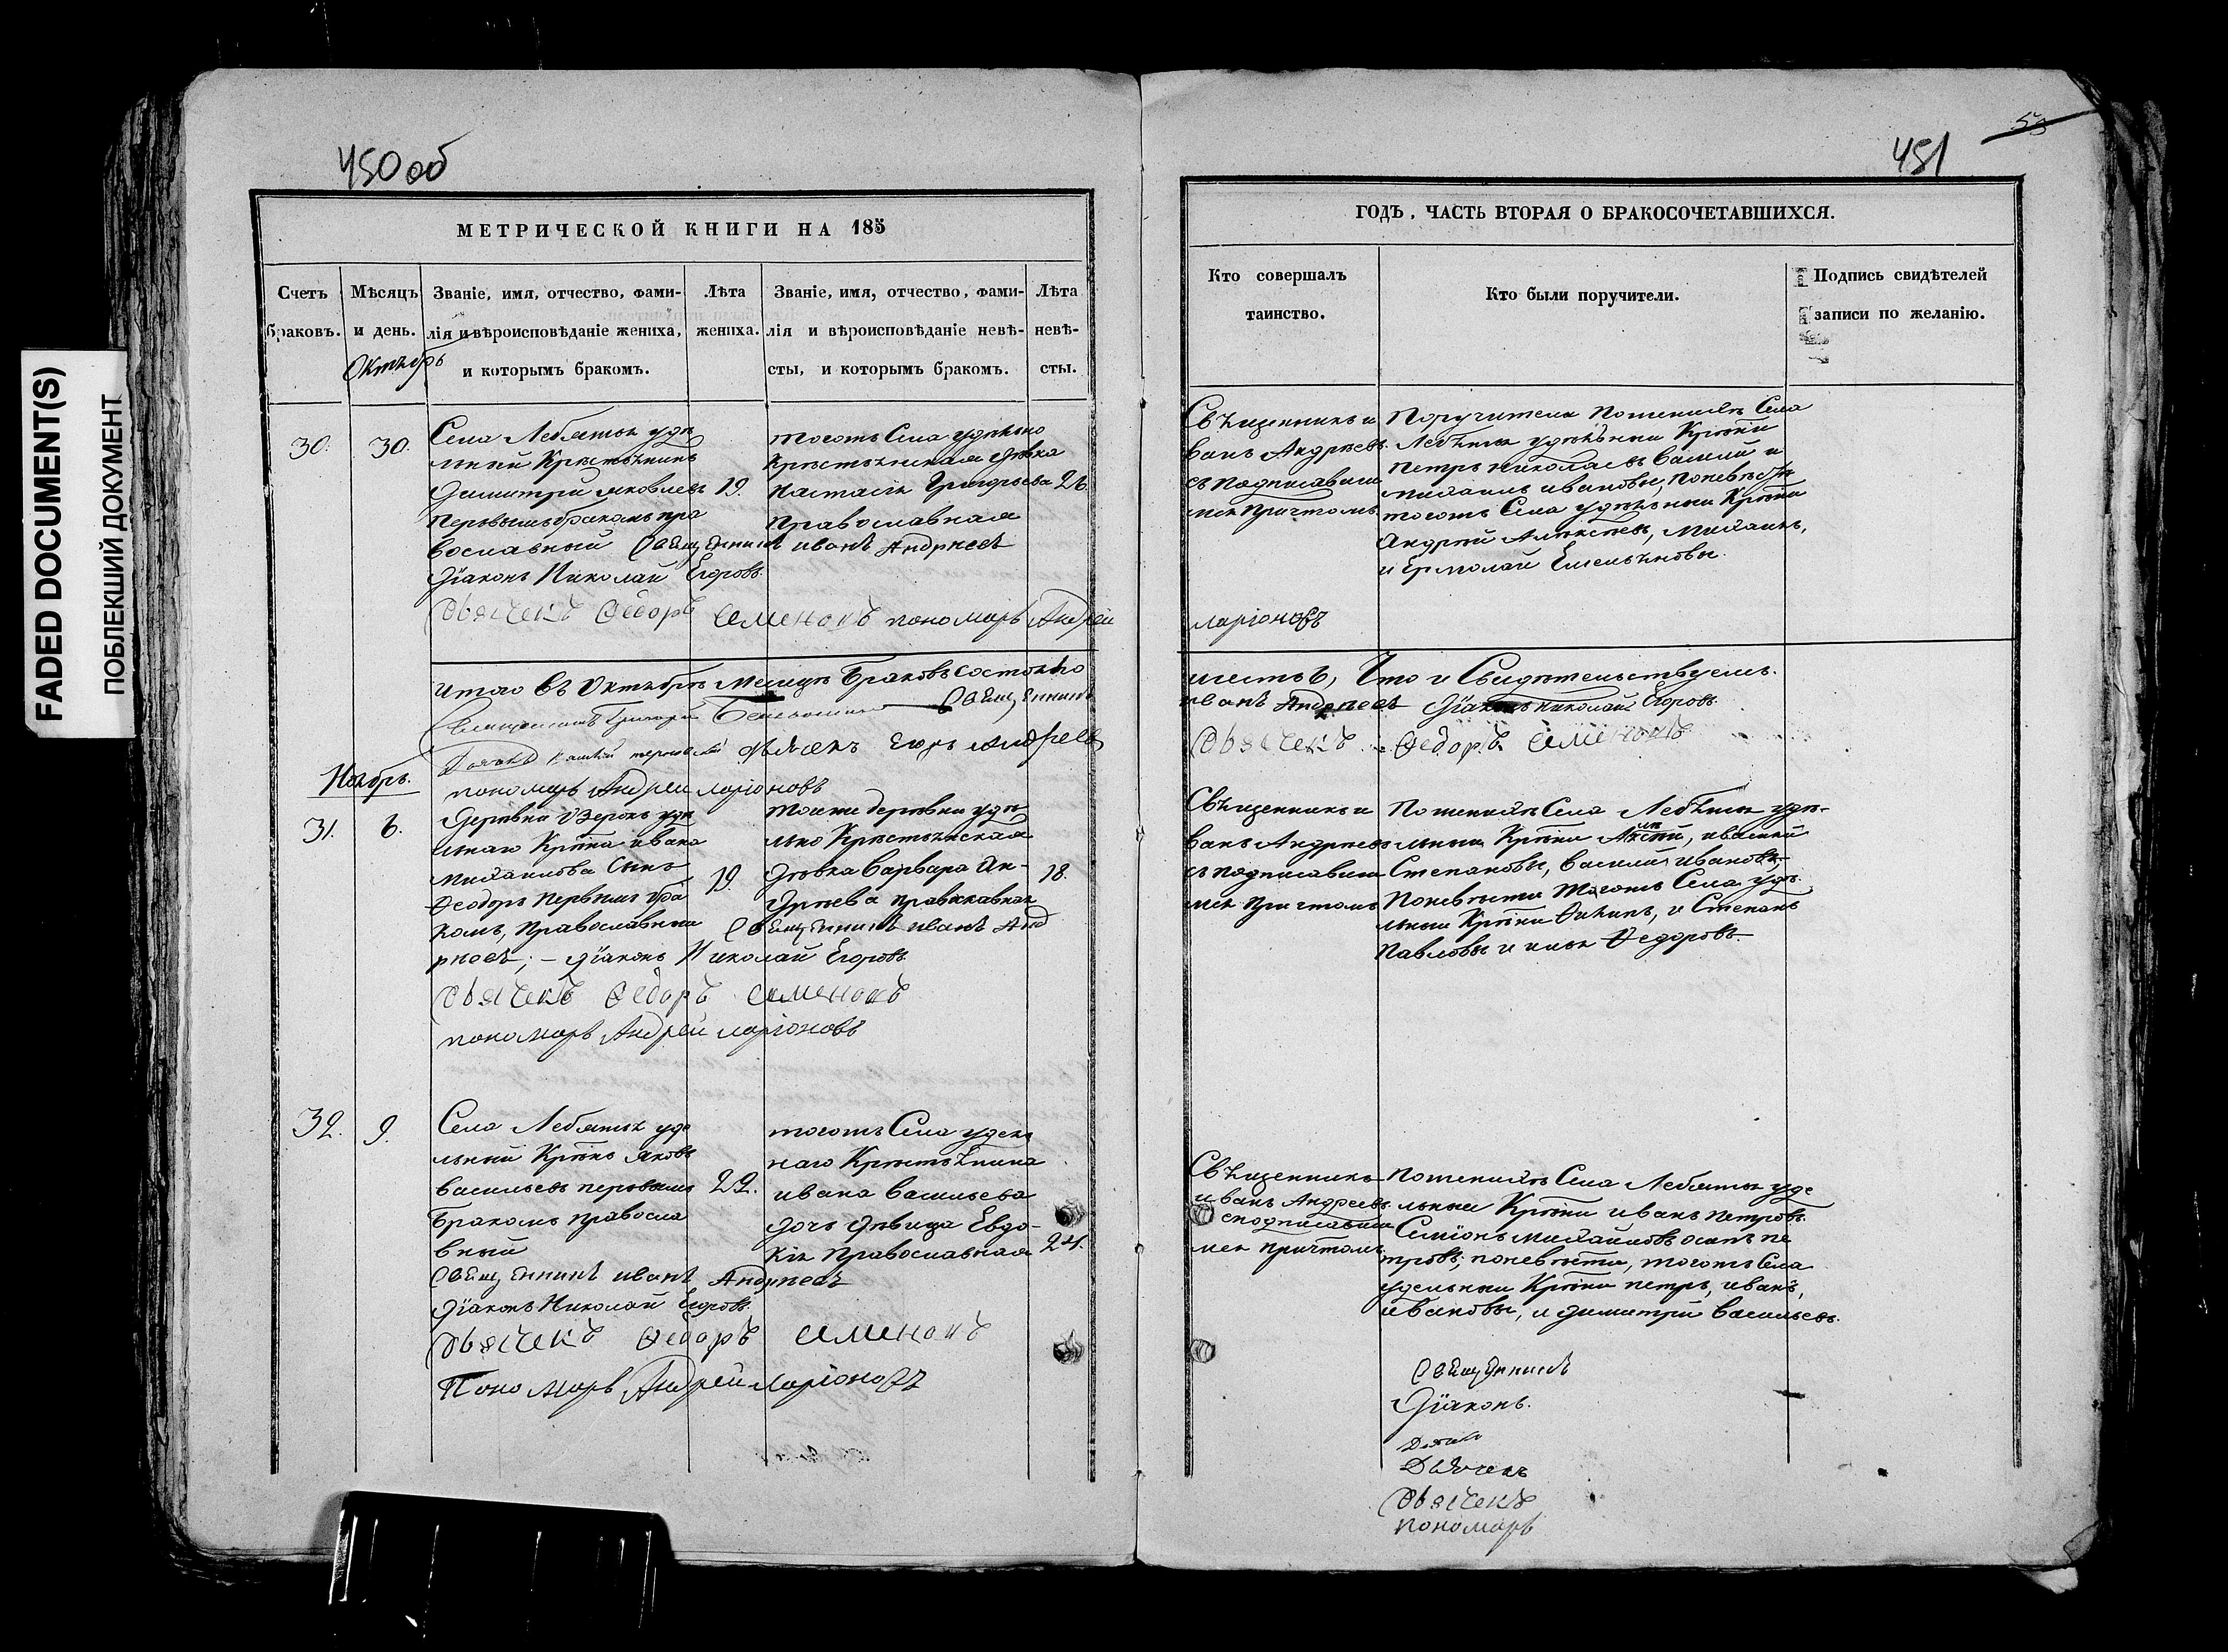 450 об
451
53
FADED DOCUMENT(S)
ПОБЛЕКШИЙ ДОКУМЕНТ
МЕТРИЧЕСКОЙ КНИГИ НА 185
Счетъ браковъ.
Мѣсяцъ и день.
Октябрь
Званіе, имя, отчество, фами-
лія и вѣроисповѣданіе жениха,
и которымъ бракомъ.
Лѣта жениха.
Званіе, имя, отчество, фами-
лія и вѣроисповѣданіе невѣ-
сты, и которымъ бракомъ.
Лѣта невѣ-
сты.
30.
30.
Села Лебяжья удѣ
льный Крестьянинъ
Димитрій Яковлевъ
первымъ бракомъ пра
вославный
19.
тогожъ Села удѣльно
Крестьянская дѣвка
Настасія Григорьева
православная
26.
Священникъ иванъ Андреевъ
Діаконъ Николай Егоровъ
Дьячекъ Ѳедоръ Семеновъ пономарь Андрей
Итого въ Октябрѣ Месяцѣ Браковъ состояло
Священникъ
дьячекъ Егоръ Андреевъ
пономарь Андрей ларіоновъ
Ноябрь.
31.
6.
Деревни Озерокъ удѣ
льнаго Крѣнина ивана
Михайлова Сынъ
Ѳеодоръ первымъ бра
комъ, православный
19.
тоиже деревни удѣ
льно Крестьянская
дѣвка Варвара Ан-
дреева православная
18.
Священникъ иванъ Анд
реевъ; – Діаконъ Николай Егоровъ
Дьячекъ Ѳедоръ Семеновъ
пономарь Андрей ларіоновъ
32.
9.
Села Лебяжья уде
льный Крѣнъ Яковъ
Васильевъ первымъ
Бракомъ правосла
вный
22.
тогожъ Села удель
наго Крестьянина
ивана Васильева
дочь дѣвица Евдо-
кія православная
24.
Священникъ иванъ Андреевъ
Діаконъ Николай Егоровъ
Дьячекъ Ѳедоръ Семеновъ
Пономарь Андрей Ларіоновъ
ГОДЪ, ЧАСТЬ ВТОРАЯ О БРАКОСОЧЕТАВШИХСЯ.
Кто совершалъ
таинство.
Кто были поручители.
Подпись свидѣтелей
записи по желанію.
Священникъ и
ванъ Андреевъ
съ подписавши
мся Причтомъ
Поручители по женихѣ Села
Лебяжья удѣльныи Крѣни
Петръ Николаевъ Василій и
Михаилъ ивановы, по невѣстѣ
тогожъ Села удѣльныи Крѣни
Андрей Алексѣевъ, Михаилъ,
и Ермолай Емельяновы.
ларіоновъ
шесть 6, Что и Свидѣтельствуемъ.
иванъ Андреевъ Діаконъ Николай Егоровъ
Дьячекъ Ѳедоръ Семеновъ
Священникъ и
ванъ Андреевъ
съ подписавши
мся Причтомъ
По женихѣ Села Лебяжья удѣ-
льныи Крѣни
Степановы, Василій ивановъ,
По невѣсте тогожъ Села удѣ-
льныи Крѣни и Степанъ
Павловы и илья Ѳедоровъ.
Священникъ
иванъ Андреевъ
сподписавши
мся причтомъ
По женихѣ Села Лебяжья уде
льныи Крѣни иванъ петровъ
Семіонъ михайловъ осипъ пе
тровъ; поневѣсте, тогожъ Села
удельныи Крѣни петръ, иванъ,
ивановы, и димитрій Васильевъ.
Священникъ
Діаконъ.
Дьячекъ
Дьячекъ
пономарь